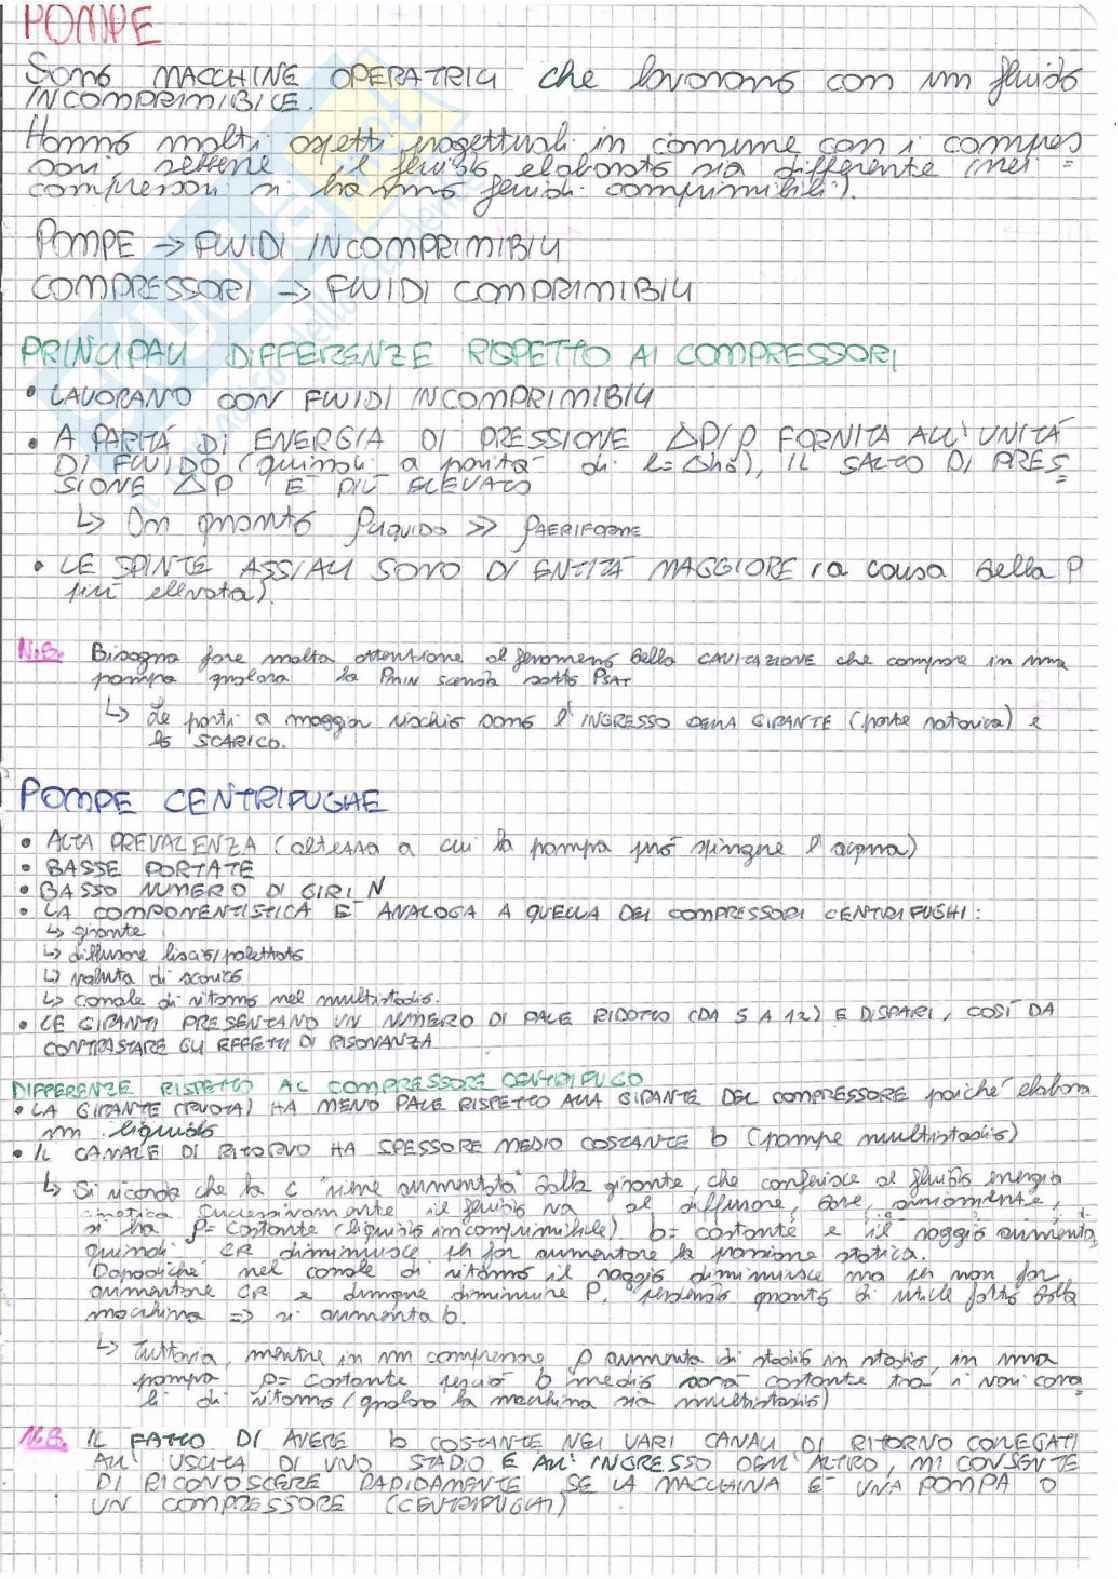 POMPE
Sono MACCHINE OPERATRICI che lavorano con un fluido
INCOMPRIMIBILE.
Hanno molti aspetti progettuali in comune con i compres
sori, sebbene il fluido elaborato sia differente (nei
compressori si hanno fluidi comprimibili).
POMPE → FLUIDI INCOMPRIMIBILI
COMPRESSORI → FLUIDI COMPRIMIBILI
PRINCIPALI DIFFERENZE RISPETTO AI COMPRESSORI
• LAVORANO CON FLUIDI INCOMPRIMIBILI
• A PARITÁ DI ENERGIA DI PRESSIONE ΔP/ρ FORNITA ALL'UNITÁ
DI FLUIDO (quindi a parità di li Δh0), IL SALTO DI PRES
SIONE ΔP É PIÙ ELEVATO
↳ In quanto ρLIQUIDO >> ρAERIFORME
• LE SPINTE ASSIALI SONO DI ENTITÁ MAGGIORE (a causa della P
più elevata).
N.B. Bisogna fare molta attenzione al fenomeno della CAVITAZIONE che compare in una
pompa qualora la PMIN scenda sotto PSAT
↳ Le parti a maggior rischio sono l'INGRESSO DELLA GIRANTE (parte rotorica) e
lo SCARICO.
POMPE CENTRIFUGHE
• ALTA PREVALENZA (altezza a cui la pompa può spingere l'acqua)
• BASSE PORTATE
• BASSO NUMERO DI GIRI N
• LA COMPONENTISTICA É ANALOGA A QUELLA DEI COMPRESSORI CENTRIFUGHI:
↳ girante
↳ diffusore liscio/palettato
↳ voluta di scarico
↳ canale di ritorno nel multistadio.
• LE GIRANTI PRESENTANO UN NUMERO DI PALE RIDOTTO (DA 5 A 12) E DISPARI, COSÍ DA
CONTRASTARE GLI EFFETTI DI RISONANZA
DIFFERENZE RISPETTO AL COMPRESSORE CENTRIFUGO
• LA GIRANTE (RUOTA) HA MENO PALE RISPETTO ALLA GIRANTE DEL COMPRESSORE poiché elabora
un liquido
• IL CANALE DI RITORNO HA SPESSORE MEDIO COSTANTE b (pompe multistadio)
↳ Si ricorda che la c viene aumentata dalla girante, che conferisce al fluido energia
cinetica. Successivamente il fluido va al diffusore, dove,
si ha ρ= costante (liquido incomprimibile) b= costante e il raggio aumenta,
quindi CR diminuisce per far aumentare la pressione statica.
Dopodiché nel canale di ritorno il raggio diminuisce ma per non far
aumentare CR e dunque diminuire P, perdendo quanto di utile fatto dalla
macchina => si aumenta b.
↳ Tuttavia, mentre in un compressore ρ aumenta di stadio in stadio, in una
pompa ρ= costante perciò b medio sarà costante tra i vari cana
li di ritorno (qualora la macchina sia multistadio)
N.B. IL FATTO DI AVERE b COSTANTE NEI VARI CANALI DI RITORNO COLLEGATI
ALL'USCITA DI UNO STADIO E ALL'INGRESSO DELL'ALTRO, MI CONSENTE
DI RICONOSCERE RAPIDAMENTE SE LA MACCHINA É UNA POMPA O
UN COMPRESSORE (CENTRIFUGHI)